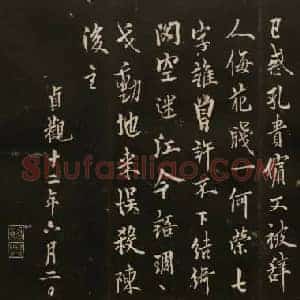 日惑孔貴嬪又被辭
人侮花牋一何榮七
字誰曾許不下結綺
閣空迷江令語
戈動地來誤殺陳
後主
貞觀十二年六月二日
Shufaziliao.COM